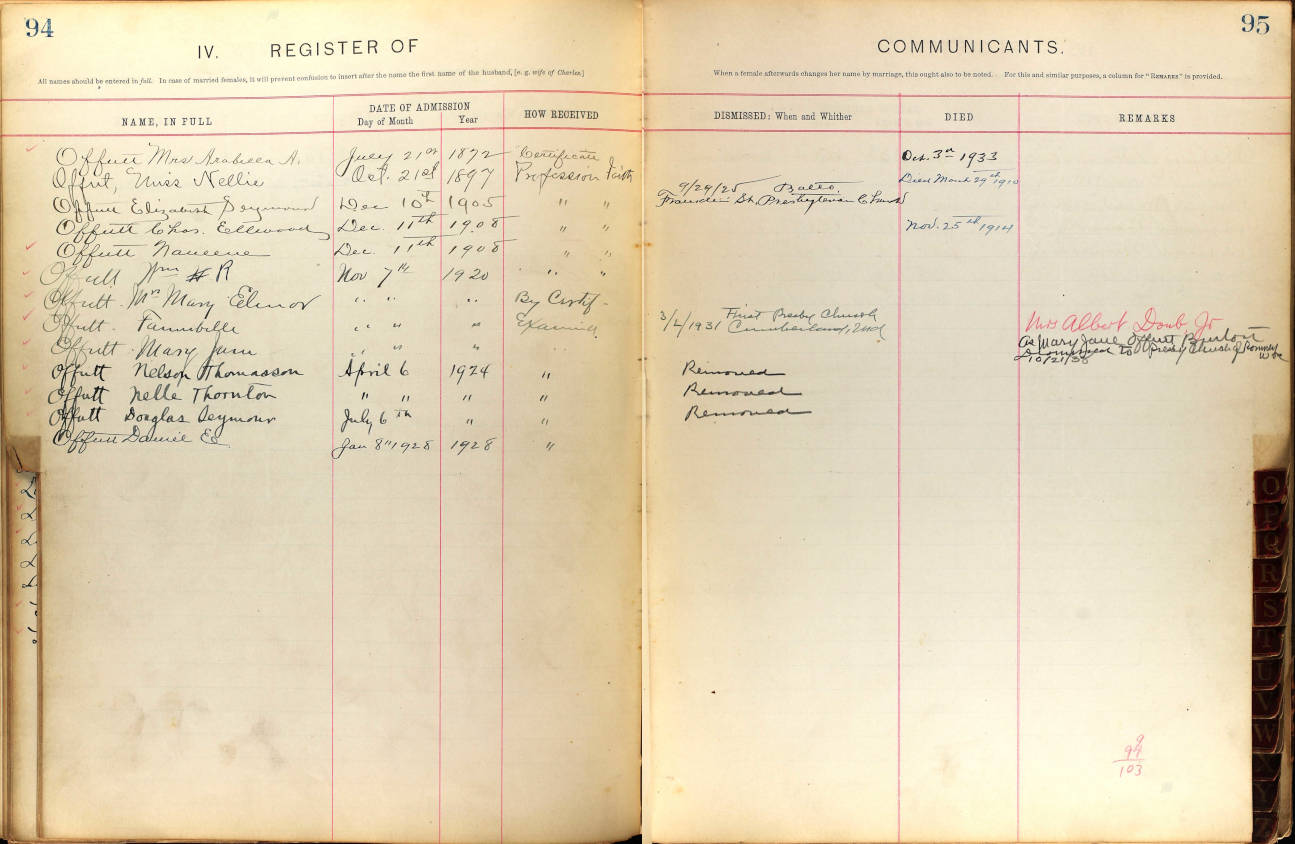 94
IV. REGISTER OF
All names should be entered in full. In case of married females, it will prevent confusion to insert after the name the first name of the husband, [e. g. wife of Charles.]
NAME, IN FULL
DATE OF ADMISSION
Day of Month Year
HOW RECEIVED
Offutt Mrs Arabella A. July 21st 1872 Certificate
Offutt, Miss Nellie Oct. 21st 1897 Profession Faith
Offutt Elizabeth Seymour Dec 10th 1905 " "
Offutt Chas. Ellwood Dec. 11th 1908 " "
Offutt Nancene Dec. 11th 1908 " "
Offutt Wm R Nov 7th 1920 " "
Offutt Mrs Mary Elinor " " " By Certif-
Offutt Fannibelle " " " Examina
Offutt Mary Jane " "
Offutt Nelson Thomasson April 6 1924 "
Offutt Nelle Thornton " " " "
Offutt Douglas Seymour July 6th " "
Offutt Daniel E Jan 8" 1928 1928 "
95
COMMUNICANTS.
When a female afterwards changes her name by marriage, this ought also to be noted. For this and similar purposes, a column for "REMARKS" is provided.
DISMISSED: When and Whither
DIED
REMARKS
Oct. 3rd 1933
Died March 29th 1910
9/29/25 Balto.
Franklin St. Presbyterian Church
Nov. 25th 1914
3/2/1931 First Presby Church
Cumberland, Md
Mrs Albert Doub, Jr
As Mary Jane Offutt Burton
Dismissed to Presby Church of Romney
10/21/38 W Va
Removed
Removed
Removed
9
94
103
O
P
Q
R
S
T
U
V
W
X
Y
Z